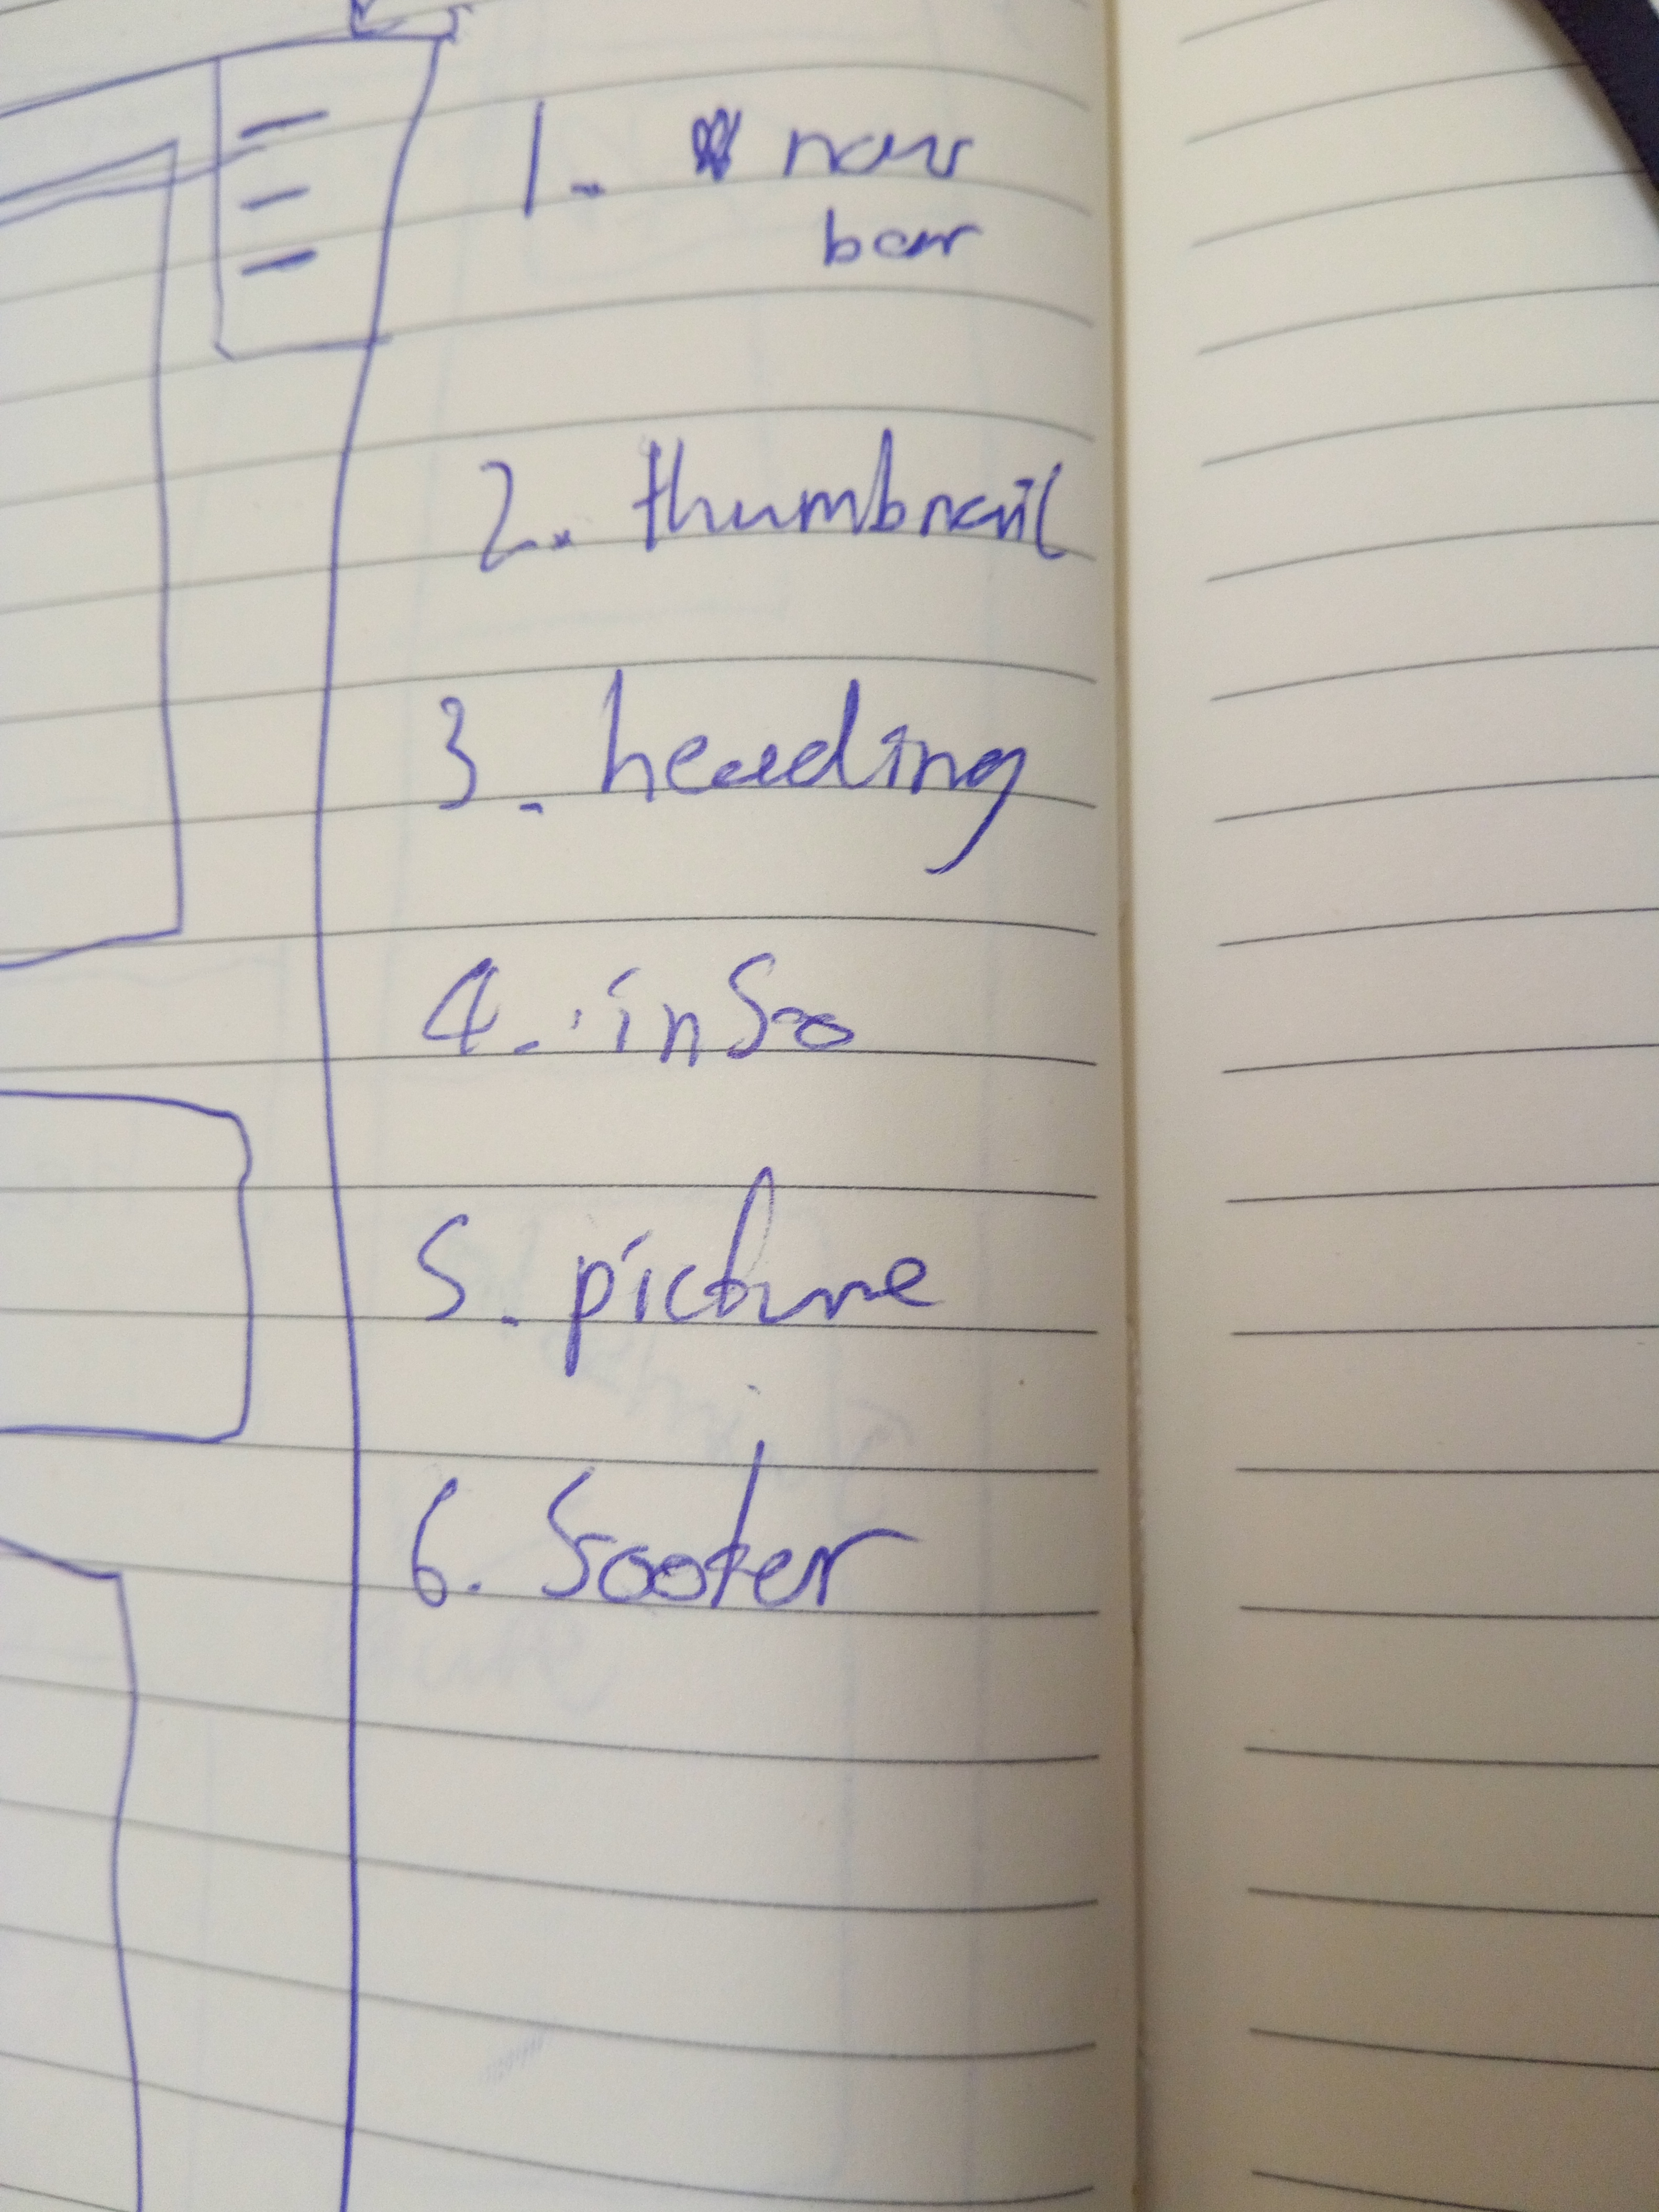 1. nav
bar
2. thumbnail
3. heading
4. info
5. picture
6. footer